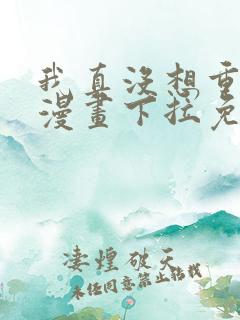 我真没想重
漫畫下拉免
凄煌破天
未经同意禁止转载